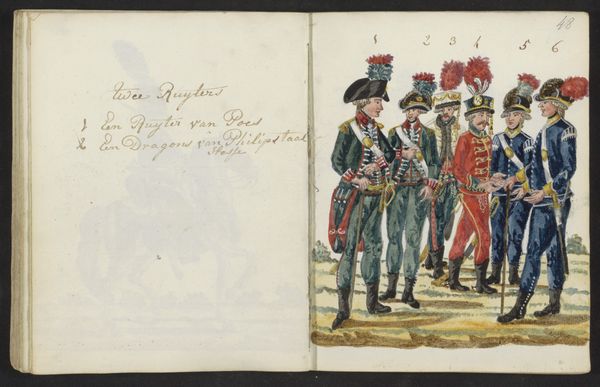 twee Ruyters
1 Een Ruyter van Poes
2 Een Dragons van Philipstaal
Hosse
48
1 2 3 4 5 6